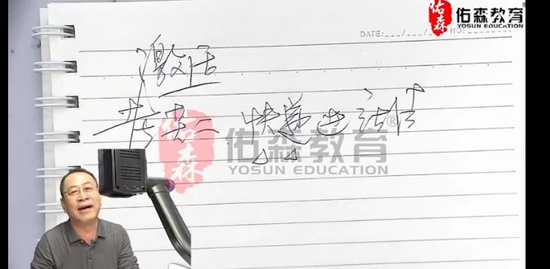 佑森 佑森教育
YOSUN EDUCATION
DATE: NO.
激活
二 快递
佑森 佑森教育®
YOSUN EDUCATION